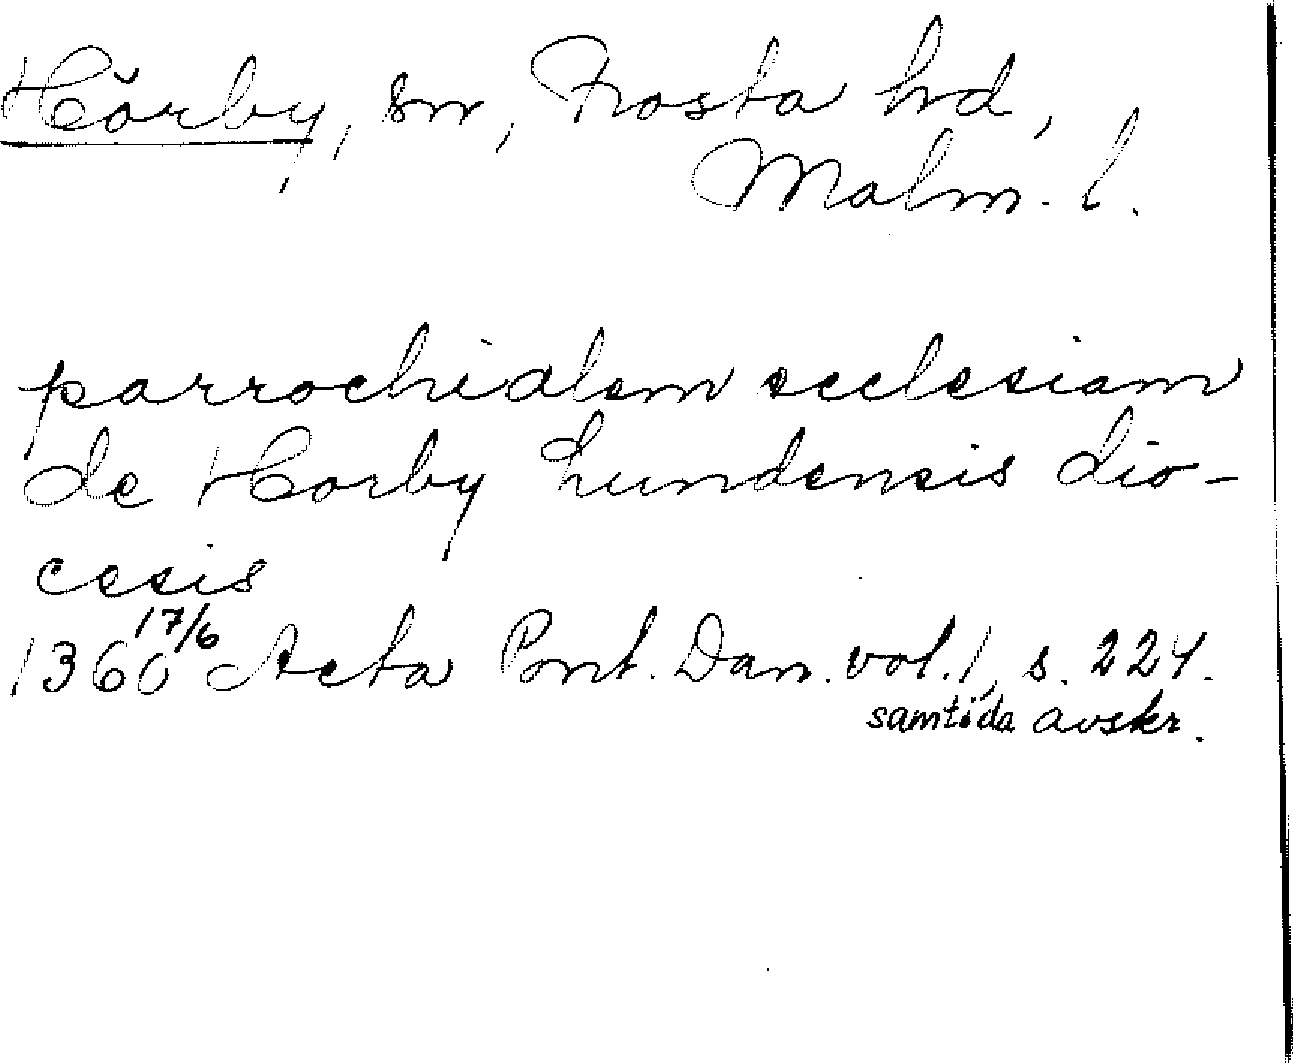 Hörby, sn, Frosta hd,
Malm. l.
parrochialem ecclesiam
de Horby Lundensis dio-
cesis
1360 17/6 Acta Pont. Dan. vol. 1, s. 224.
samtida avskr.